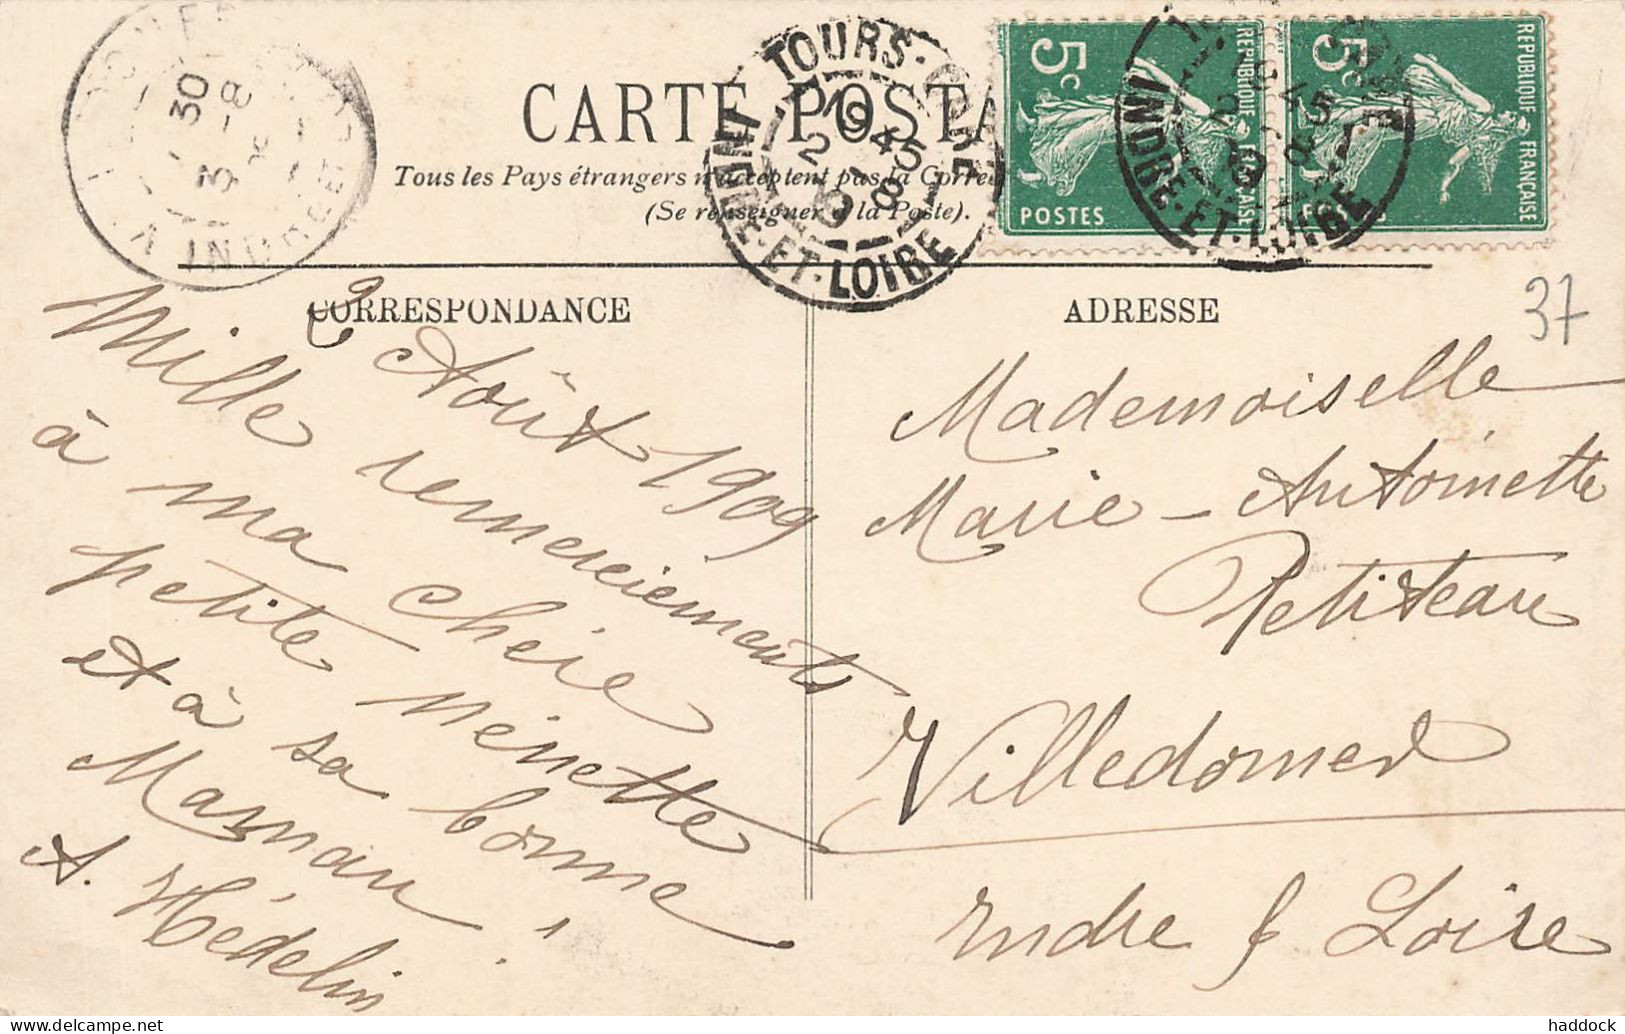 CARTE POSTA
Tous les Pays étrangers n'acceptent pas la Corres
(Se renseigner à la Poste).
TOURS-GARE
INDRE-ET-LOIRE
18 45
2 -8
09
TOURS-GARE
INDRE-ET-LOIRE
18 45
2 -8
09
30
3 -8
INDRE
5c
POSTES
REPUBLIQUE FRANÇAISE
5c
POSTES
REPUBLIQUE FRANÇAISE
37
CORRESPONDANCE
2 Août 1909
Mille remerciements
à ma chère
petite Nénette
et à sa bonne
Maman.
A. Hédelin
ADRESSE
Mademoiselle
Marie-Antoinette
Petiteau
Villedomer
Indre & Loire
haddock